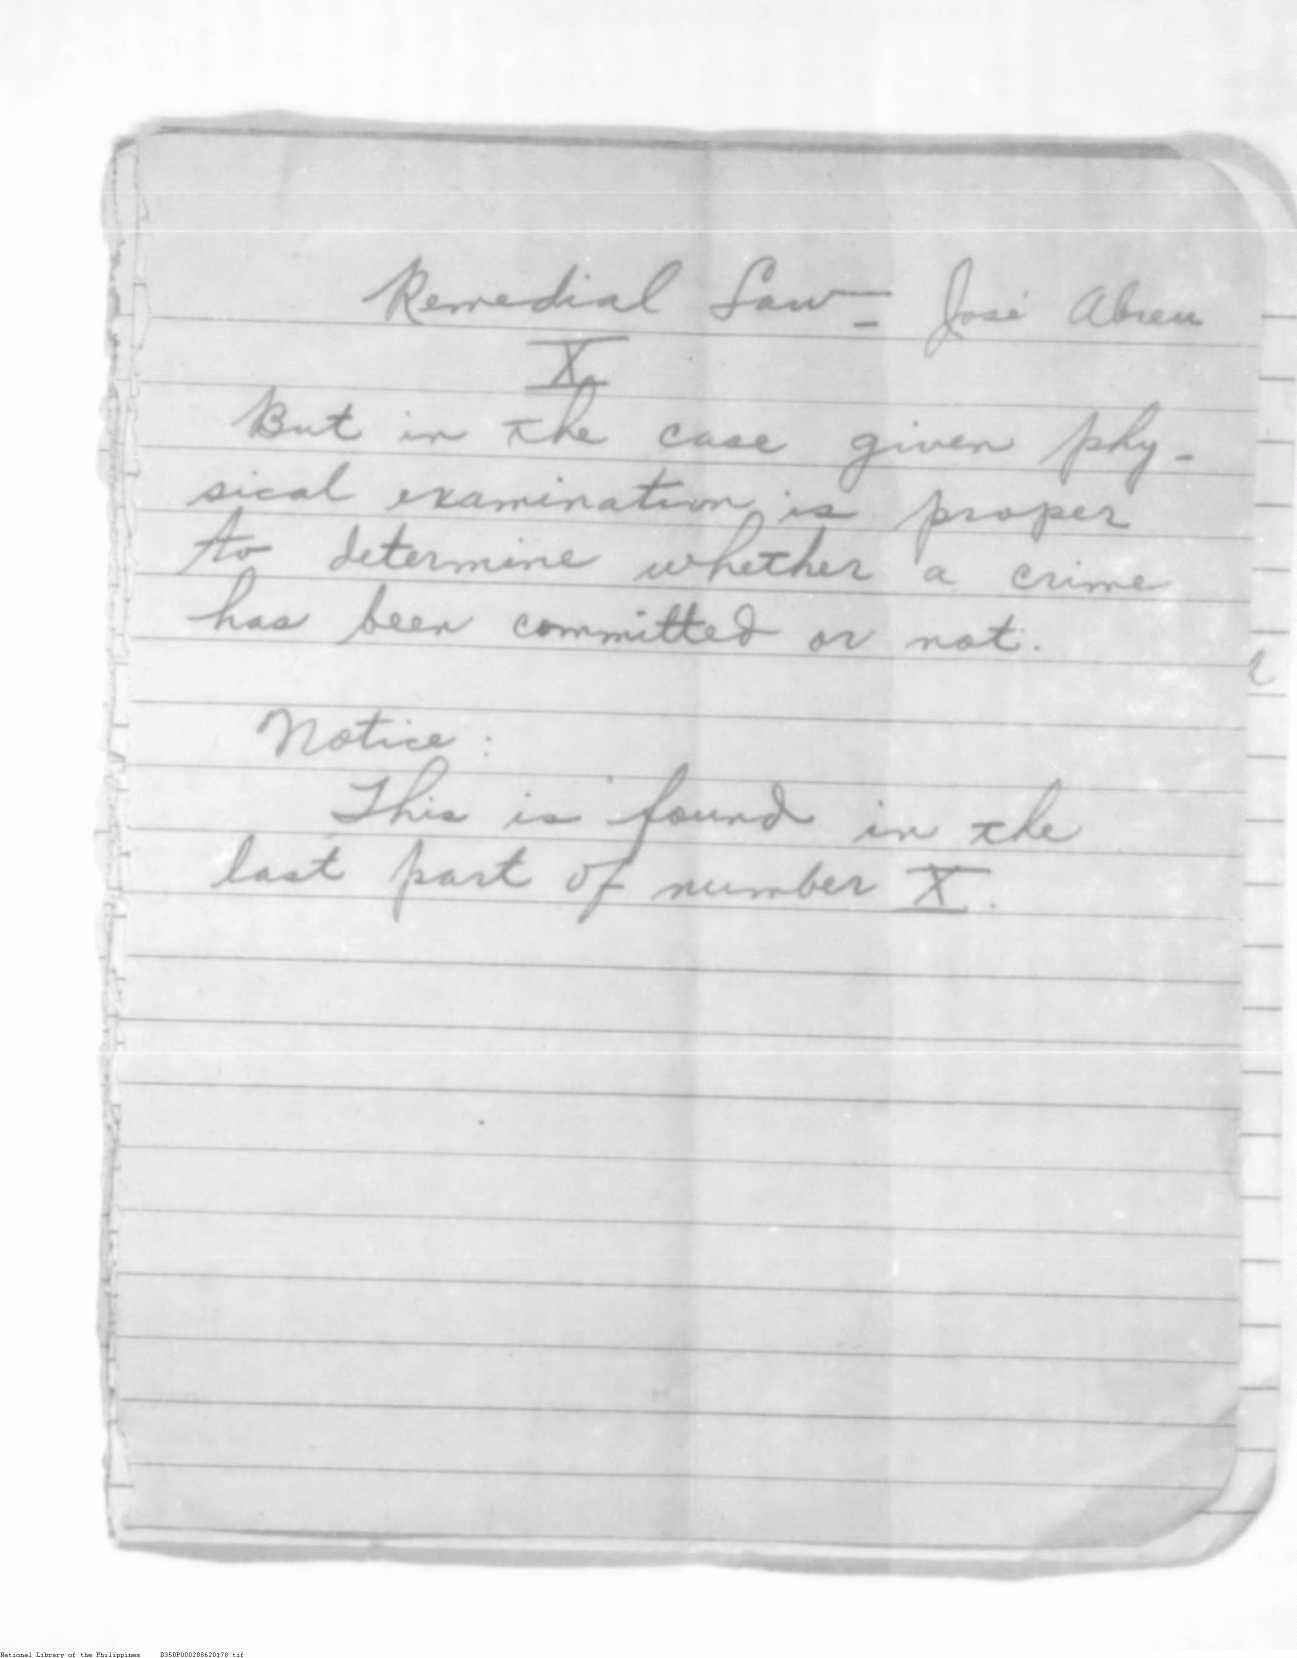 Remedial Law = José Abreu
X
But in the case given phy-
sical examination is proper
to determine whether a crime
has been committed or not.
Notice:
This is found in the
last part of number X.
National Library of the Philippines B350P000288620178.tif